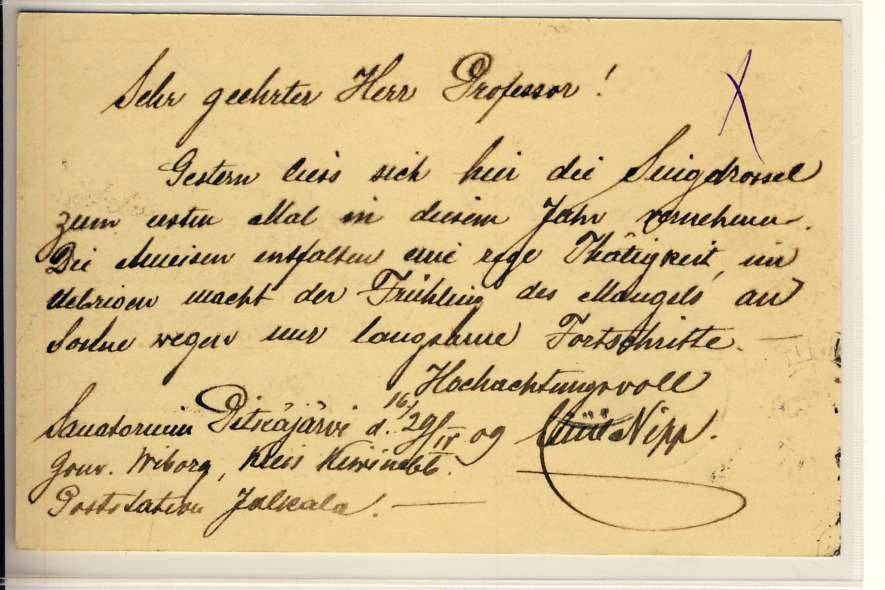 Sehr geehrter Herr Professor!
Gestern liess sich hier die Singdrossel
zum ersten Mal in diesem Jahr vernehmen.
Die Ameisen entfalten eine rege Thätigkeit, im
Uebrigen macht der Frühling des Mangels an
Sonne wegen nur langsame Fortschritte. —
Hochachtungsvoll
Sanatorium Pitkäjärvi d. 16/29/IV 09 Nipp.
Gouv. Wiborg, Kreis Kiwinebb.
Poststation Jalkala. —